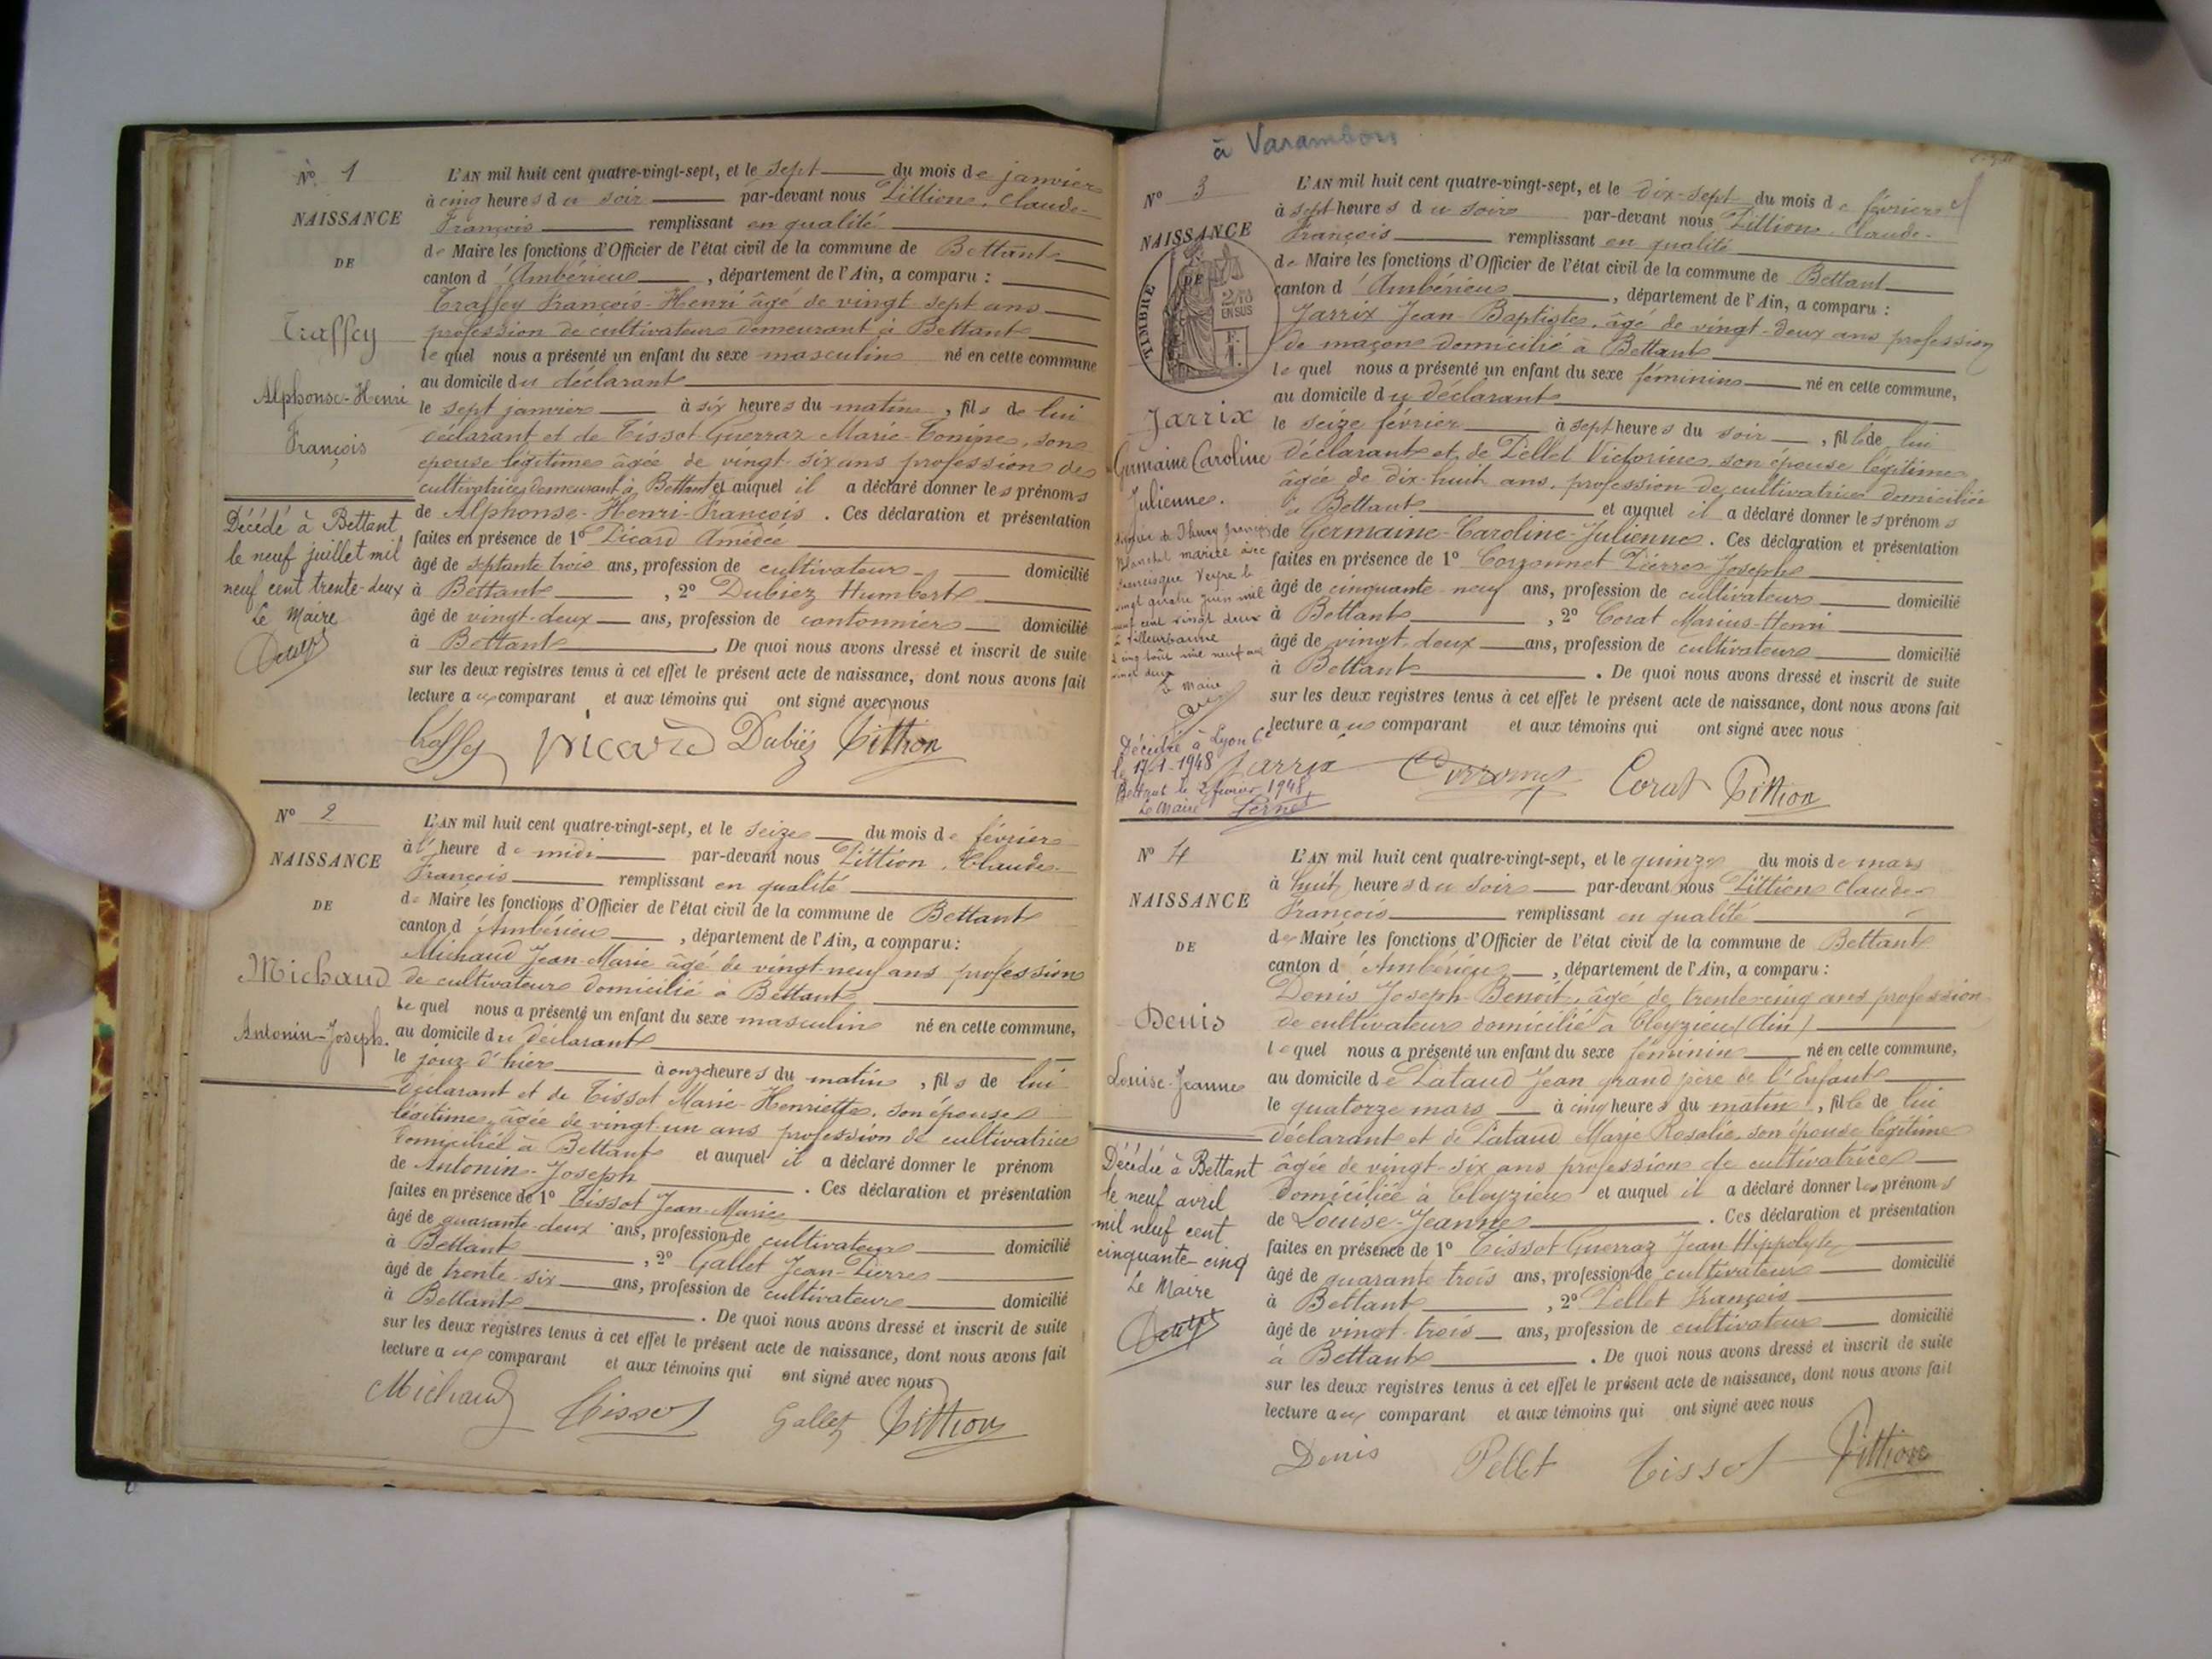 N° 1
NAISSANCE
DE
Traffey
Alphonse-Henri
François
Décédé à Bettant
le neuf juillet mil
neuf cent trente-deux
Le Maire
L'AN mil huit cent quatre-vingt-sept, et le sept du mois de janvier
à cinq heures du soir par-devant nous Pittion, Claude-
François remplissant en qualité
de Maire les fonctions d'Officier de l'état civil de la commune de Bettant
canton d'Ambérieu, département de l'Ain, a comparu :
Traffey François-Henri âgé de vingt-sept ans
profession de cultivateur demeurant à Bettant
lequel nous a présenté un enfant du sexe masculin né en cette commune
au domicile du déclarant
le sept janvier à six heures du matin, fils de lui
déclarant et de Tissot Guerraz Marie-Tonine, son
épouse légitime âgée de vingt-six ans profession de
cultivatrice demeurant à Bettant et auquel il a déclaré donner les prénoms
de Alphonse-Henri-François. Ces déclaration et présentation
faites en présence de 1° Picard Amédée
âgé de septante trois ans, profession de cultivateur domicilié
à Bettant, 2° Dubiez Humbert
âgé de vingt-deux ans, profession de cantonnier domicilié
à Bettant. De quoi nous avons dressé et inscrit de suite
sur les deux registres tenus à cet effet le présent acte de naissance, dont nous avons fait
lecture aux comparant et aux témoins qui ont signé avec nous
Traffey Picard Dubiez Pittion
N° 2
NAISSANCE
DE
Michaud
Antonin-Joseph.
L'AN mil huit cent quatre-vingt-sept, et le seize du mois de février
à l'heure de midi par-devant nous Pittion, Claude-
François remplissant en qualité
de Maire les fonctions d'Officier de l'état civil de la commune de Bettant
canton d'Ambérieu, département de l'Ain, a comparu :
Michaud Jean-Marie âgé de vingt-neuf ans profession
de cultivateur domicilié à Bettant
lequel nous a présenté un enfant du sexe masculin né en cette commune,
au domicile du déclarant
le jour d'hier à onze heures du matin, fils de lui
déclarant et de Tissot Marie-Henriette, son épouse
légitime, âgée de vingt-un ans profession de cultivatrice
domiciliée à Bettant et auquel il a déclaré donner le prénom
de Antonin-Joseph. Ces déclaration et présentation
faites en présence de 1° Tissot Jean-Marie
âgé de quarante-deux ans, profession de cultivateur domicilié
à Bettant, 2° Gallet Jean-Pierre
âgé de trente-six ans, profession de cultivateur domicilié
à Bettant. De quoi nous avons dressé et inscrit de suite
sur les deux registres tenus à cet effet le présent acte de naissance, dont nous avons fait
lecture aux comparant et aux témoins qui ont signé avec nous
Michaud Tissot Gallet Pittion
à Varambon
N° 3
NAISSANCE
DE
TIMBRE
2/10
EN SUS
Jarrix
Germaine Caroline
Julienne.
mariée avec
Veyre le
vingt quatre juin mil
neuf cent vingt deux
à Villeurbanne
Le Maire
Décédée à Lyon 6e
le 17-1-1948
Bettant le 2 février 1948
Le Maire
L'AN mil huit cent quatre-vingt-sept, et le dix-sept du mois de février
à sept heures du soir par-devant nous Pittion, Claude-
François remplissant en qualité
de Maire les fonctions d'Officier de l'état civil de la commune de Bettant
canton d'Ambérieu, département de l'Ain, a comparu :
Jarrix Jean-Baptiste, âgé de vingt-deux ans profession
de maçon domicilié à Bettant
lequel nous a présenté un enfant du sexe féminin né en cette commune,
au domicile du déclarant
le seize février à sept heures du soir, fille de lui
déclarant et de Pellet Victorine, son épouse légitime
âgée de dix-huit ans, profession de cultivatrice domiciliée
à Bettant et auquel il a déclaré donner les prénoms
de Germaine-Caroline-Julienne. Ces déclaration et présentation
faites en présence de 1° Corronnet Pierre-Joseph
âgé de cinquante-neuf ans, profession de cultivateur domicilié
à Bettant, 2° Corat Marius-Henri
âgé de vingt-deux ans, profession de cultivateur domicilié
à Bettant. De quoi nous avons dressé et inscrit de suite
sur les deux registres tenus à cet effet le présent acte de naissance, dont nous avons fait
lecture aux comparant et aux témoins qui ont signé avec nous
Jarrix Corat Pittion
N° 4
NAISSANCE
DE
Denis
Louise-Jeanne
Décédée à Bettant
le neuf avril
mil neuf cent
cinquante-cinq
Le Maire
L'AN mil huit cent quatre-vingt-sept, et le quinze du mois de mars
à huit heures du soir par-devant nous Pittion Claude-
François remplissant en qualité
de Maire les fonctions d'Officier de l'état civil de la commune de Bettant
canton d'Ambérieu, département de l'Ain, a comparu :
Denis Joseph-Benoit, âgé de trente-cinq ans profession
de cultivateur domicilié à Cleyzieu (Ain)
lequel nous a présenté un enfant du sexe féminin né en cette commune,
au domicile de Pataud Jean grand père de l'Enfant
le quatorze mars à cinq heures du matin, fille de lui
déclarant et de Pataud Marie Rosalie, son épouse légitime
âgée de vingt-six ans profession de cultivatrice
domiciliée à Cleyzieu et auquel il a déclaré donner les prénoms
de Louise-Jeanne. Ces déclaration et présentation
faites en présence de 1° Tissot Guerraz Jean Hippolyte
âgé de quarante-trois ans, profession de cultivateur domicilié
à Bettant, 2° Pellet François
âgé de vingt-trois ans, profession de cultivateur domicilié
à Bettant. De quoi nous avons dressé et inscrit de suite
sur les deux registres tenus à cet effet le présent acte de naissance, dont nous avons fait
lecture aux comparant et aux témoins qui ont signé avec nous
Denis Pellet Tissot Pittion